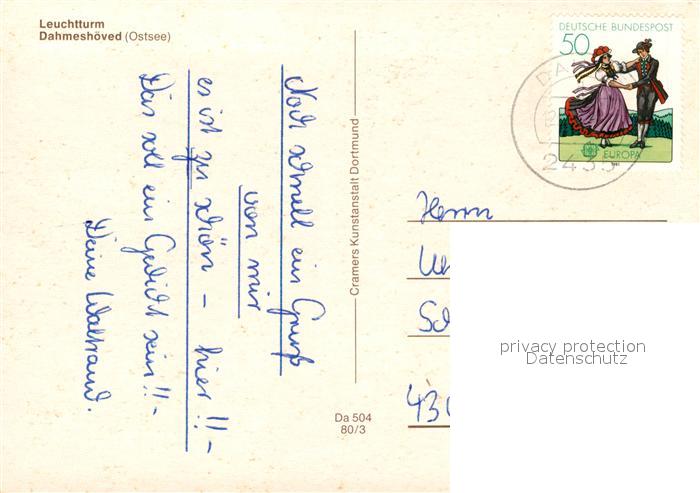 Leuchtturm
Dahmeshöved (Ostsee)
Noch schnell ein Gruß
von mir
es ist zu schön - hier!!-
Das soll ein Gedicht sein!!-
Deine Waltraud.
Cramers Kunstanstalt Dortmund
Da 504
80/3
DEUTSCHE BUNDESPOST
50
EUROPA
DA
2435
Herrn
430
privacy protection
Datenschutz